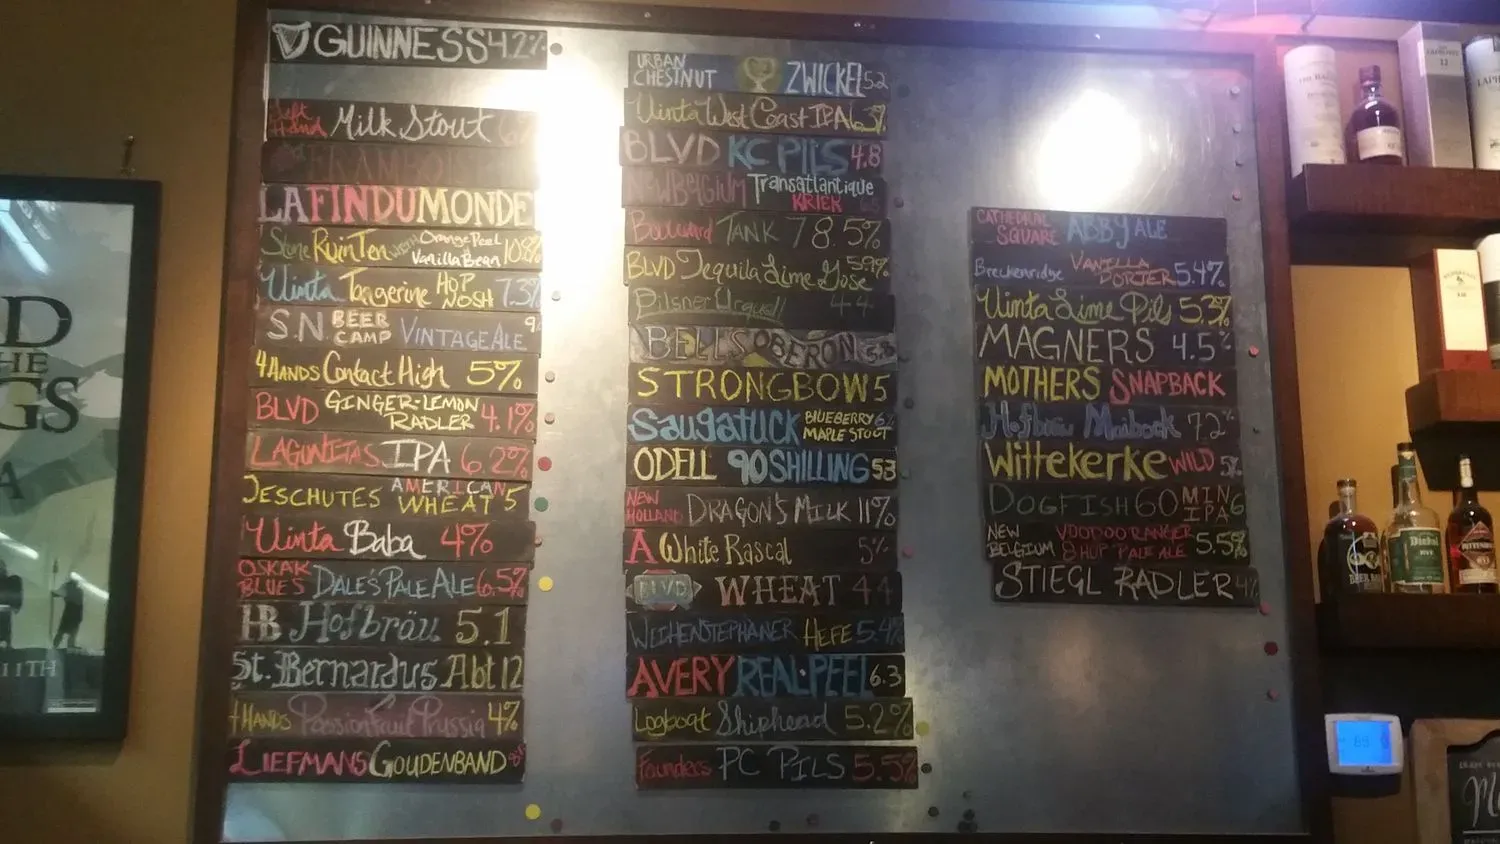 GUINNESS 4.2%
Left Hand Milk Stout 6%
FRAMBOISE
LA FIN DU MONDE
Stone Ruin Ten with Orange Peel Vanilla Bean 10.8%
Uinta Tangerine HOP NOSH 7.3%
S.N. BEER CAMP VINTAGE ALE 9%
4 HANDS Contact High 5%
BLVD GINGER-LEMON RADLER 4.1%
LAGUNITAS IPA 6.2%
DESCHUTES AMERICAN WHEAT 5
Uinta Baba 4%
OSKAR BLUES DALE'S PALE ALE 6.5%
HB Hofbräu 5.1
St. Bernardus Abt 12
4 HANDS Passionfruit Prussia 4%
LIEFMANS GOUDENBAND 8%
URBAN CHESTNUT ZWICKEL 5.2
Uinta West Coast IPA 6.3%
BLVD KC PILS 4.8
NEW BELGIUM Transatlantique KRIEK
Boulevard TANK 7 8.5%
BLVD Tequila Lime Gose 5.9%
Pilsner Urquell 4.4
BELL'S OBERON 5.8
STRONGBOW 5
Saugatuck BLUEBERRY MAPLE STOUT 6%
ODELL 90 SHILLING 53
NEW HOLLAND DRAGON'S MILK 11%
A White Rascal 5%
BLVD WHEAT 4.4
WEIHENSTEPHANER HEFE 5.4%
AVERY REAL PEEL 6.3
Logboat Shiphead 5.2%
Founders PC PILS 5.5%
CATHEDRAL SQUARE ABBY ALE
Breckenridge VANILLA PORTER 5.4%
Uinta Lime Pils 5.3%
MAGNERS 4.5%
MOTHERS SNAPBACK
Hofbräu Maibock 7.2%
Wittekerke WILD 5%
DOGFISH 60 MIN IPA 6
NEW BELGIUM VOODOO RANGER 8 HOP PALE ALE 5.5%
STIEGL RADLER